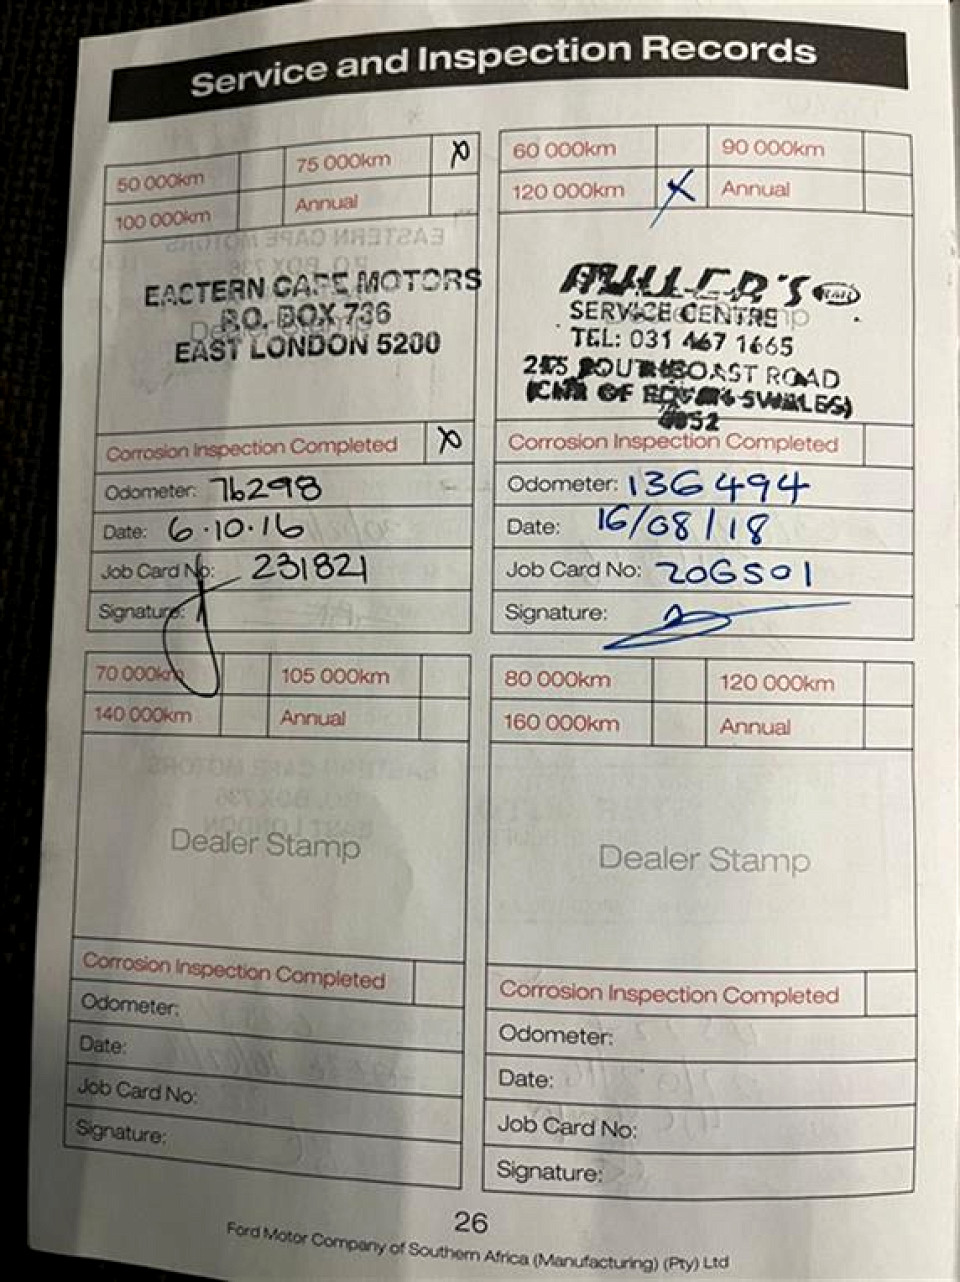 Service and Inspection Records
50 000km
75 000km X
100 000km
Annual
EACTERN CAPE MOTORS
P.O. BOX 736
EAST LONDON 5200
Corrosion Inspection Completed X
Odometer: 76298
Date: 6.10.16
Job Card No: 231821
Signature:
60 000km
90 000km
120 000km X
Annual
SERVICE CENTRE
TEL: 031 467 1665
SOUTHCOAST ROAD
Corrosion Inspection Completed
Odometer: 136494
Date: 16/08/18
Job Card No: 206501
Signature:
70 000km
105 000km
140 000km
Annual
Dealer Stamp
Corrosion Inspection Completed
Odometer:
Date:
Job Card No:
Signature:
80 000km
120 000km
160 000km
Annual
Dealer Stamp
Corrosion Inspection Completed
Odometer:
Date:
Job Card No:
Signature:
26
Ford Motor Company of Southern Africa (Manufacturing) (Pty) Ltd